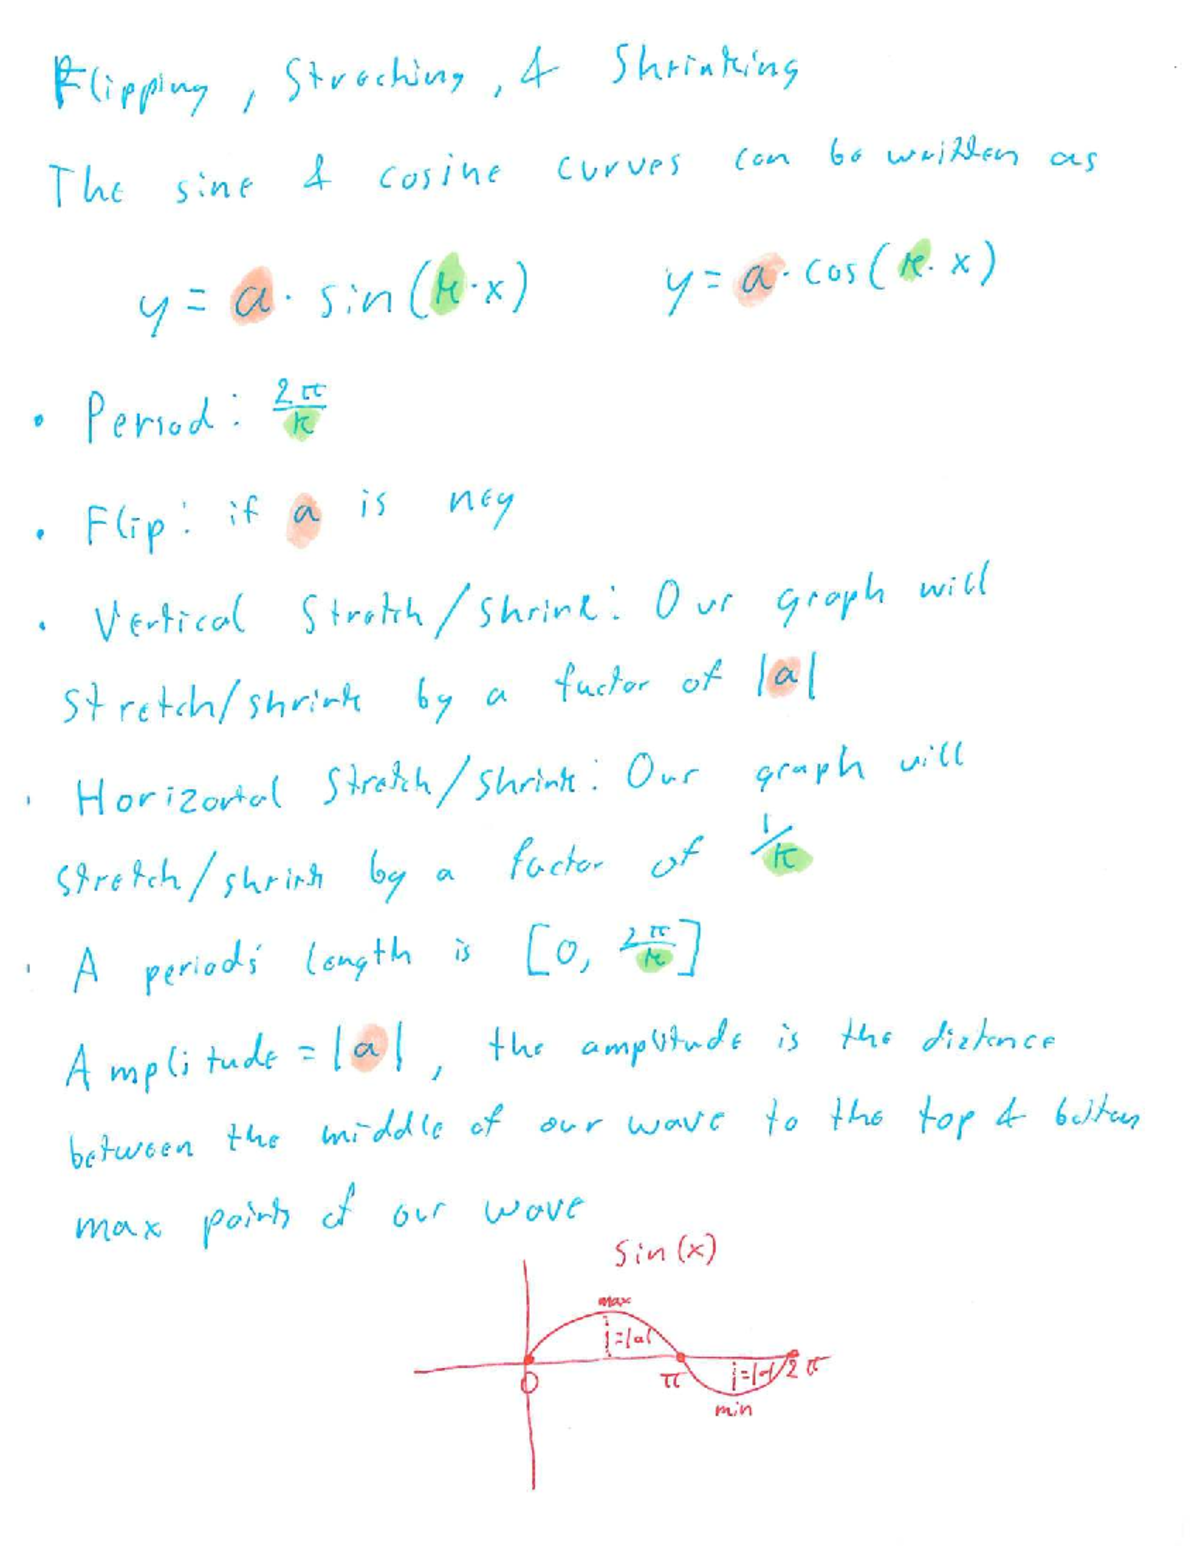 Flipping, Streching, & Shrinking
The sine & cosine curves can be written as
y = a · sin(k·x) y = a · cos(k·x)
• Period: 2π/k
• Flip: if a is neg
• Vertical Stretch/Shrink: Our graph will
stretch/shrink by a factor of |a|
• Horizontal Stretch/Shrink: Our graph will
stretch/shrink by a factor of 1/k
• A periods' length is [0, 2π/k]
Amplitude = |a|, the amplitude is the distance
between the middle of our wave to the top & bottom
max points of our wave
Sin(x)
max
=|a|
0 π =|a| 2π
min